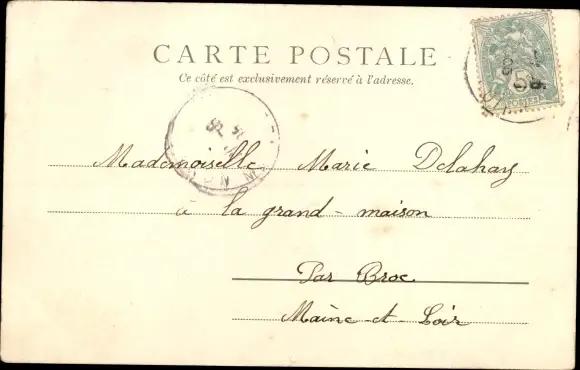 CARTE POSTALE
Ce côté est exclusivement réservé à l'adresse.
5
POSTES
Mademoiselle Marie Delahay
à la grand-maison
Par Broc
Maine et Loir